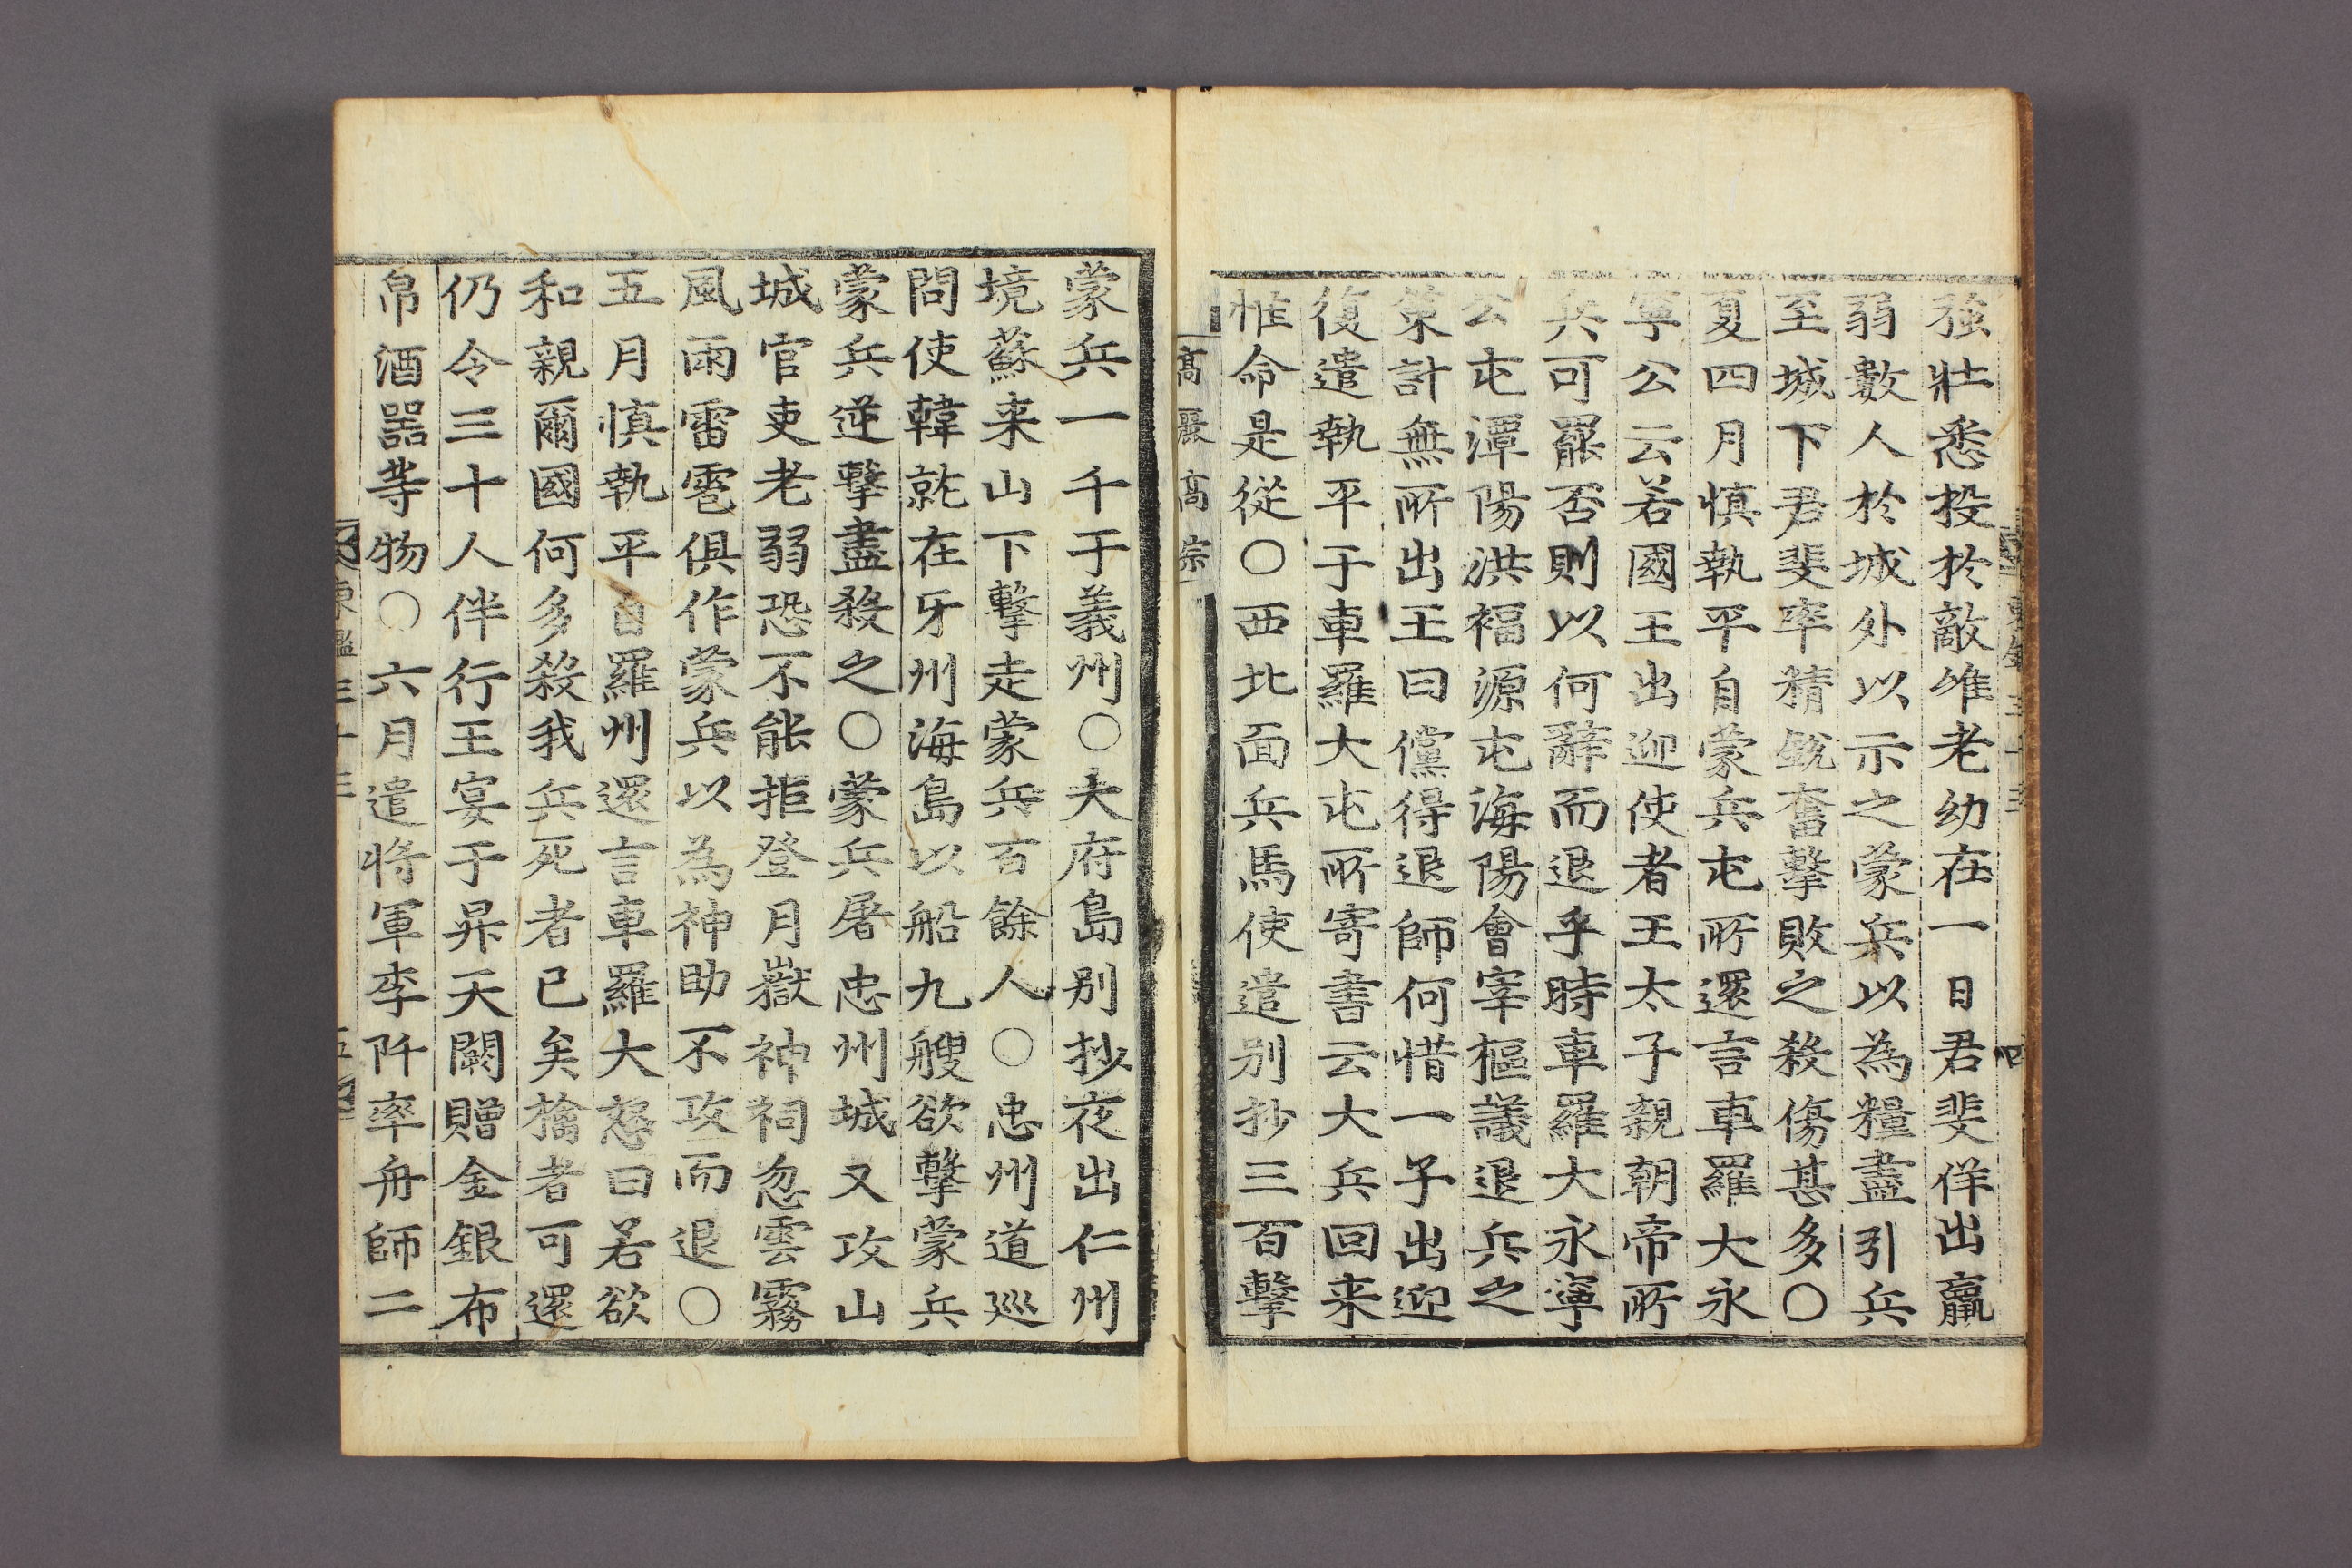 强壯悉投於敵唯老幼在一日君斐佯出羸
弱數人於城外以示之蒙兵以為糧盡引兵
至城下君斐率精銳奮擊敗之殺傷甚多○
夏四月愼執平自蒙兵屯所還言車羅大永
寧公云若國王出迎使者王太子親朝帝所
兵可罷否則以何辭而退乎時車羅大永寧
公屯潭陽洪福源屯海陽會宰樞議退兵之
策計無所出王曰儻得退師何惜一子出迎
復遣執平于車羅大屯所寄書云大兵回来
惟命是從○西北面兵馬使遣别抄三百擊
高麗高宗
蒙兵一千于義州○大府島别抄夜出仁州
境蘇来山下擊走蒙兵百餘人○忠州道巡
問使韓就在牙州海島以船九艘欲擊蒙兵
蒙兵逆擊盡殺之○蒙兵屠忠州城又攻山
城官吏老弱恐不能拒登月嶽神祠忽雲霧
風雨雷雹俱作蒙兵以為神助不攻而退○
五月愼執平自羅州還言車羅大怒曰若欲
和親爾國何多殺我兵死者已矣擒者可還
仍令三十人伴行王宴于昇天闕贈金銀布
帛酒器等物○六月遣將軍李阡率舟師二
東鑑三十三